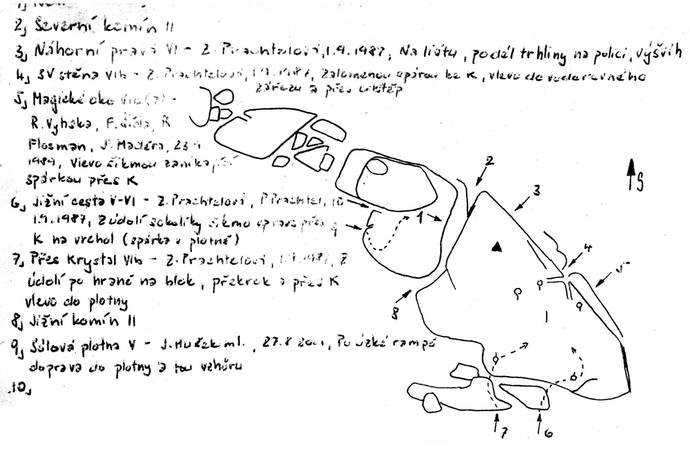 2, Severní komín II
3, Náhorní pravá VI - Z. Prachtelovi, 1.9.1987, Na lištu, podél trhliny na polici, výšvih
4, SV stěna VIb - Z. Prachtelovi, 1.9.1987, Zalomenou spárou ke K, vlevo do vodorovného
zářezu a přes
5, Magické oko
R. Vyhlska, F. R
Flosman, J. Maděra, 23
1989, Vlevo šikmou
spárkou přes K
6, Jižní cesta V-VI - Z. Prachtelovi, P. Prachtel,
1.9.1987, Z údolí sokolíky šikmo vpravo přes
K na vrchol (spárka v plotně)
7, Přes Krystal VIb - Z. Prachtelovi, 1.9.1987, Z
údolí po hraně na blok, překrok a přes K
vlevo do plotny
8, Jižní komín II
9, Sólová plotna V - J. Hušek ml., 27.8.2001, Po úzké rampě
doprava do plotny a tou vzhůru
10,
1
2
3
4
5
6
7
8
9
S